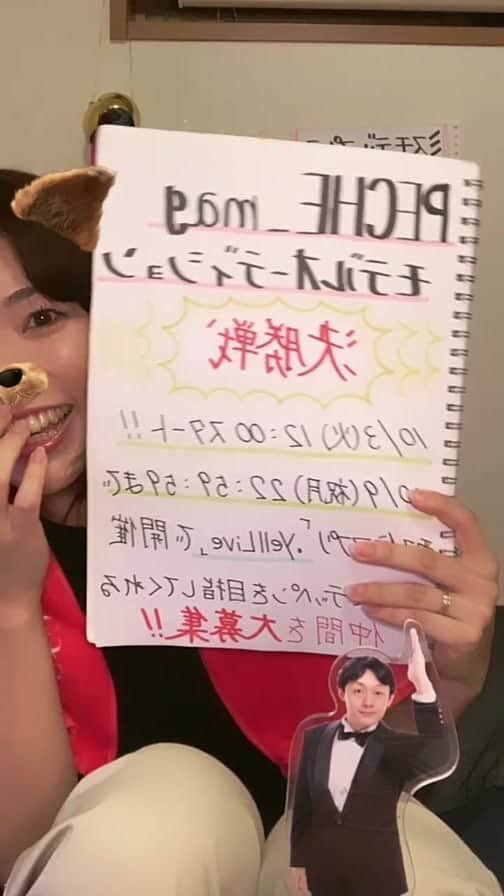 ミスモデップレ
PECHE_mag
モデルオーディション
決勝戦
10/3(火)12:00スタート!!
0/9(祝月)22:59:59まで
プリ「.yellLive」で開催
テッペンを目指してくれる
仲間を大募集!!